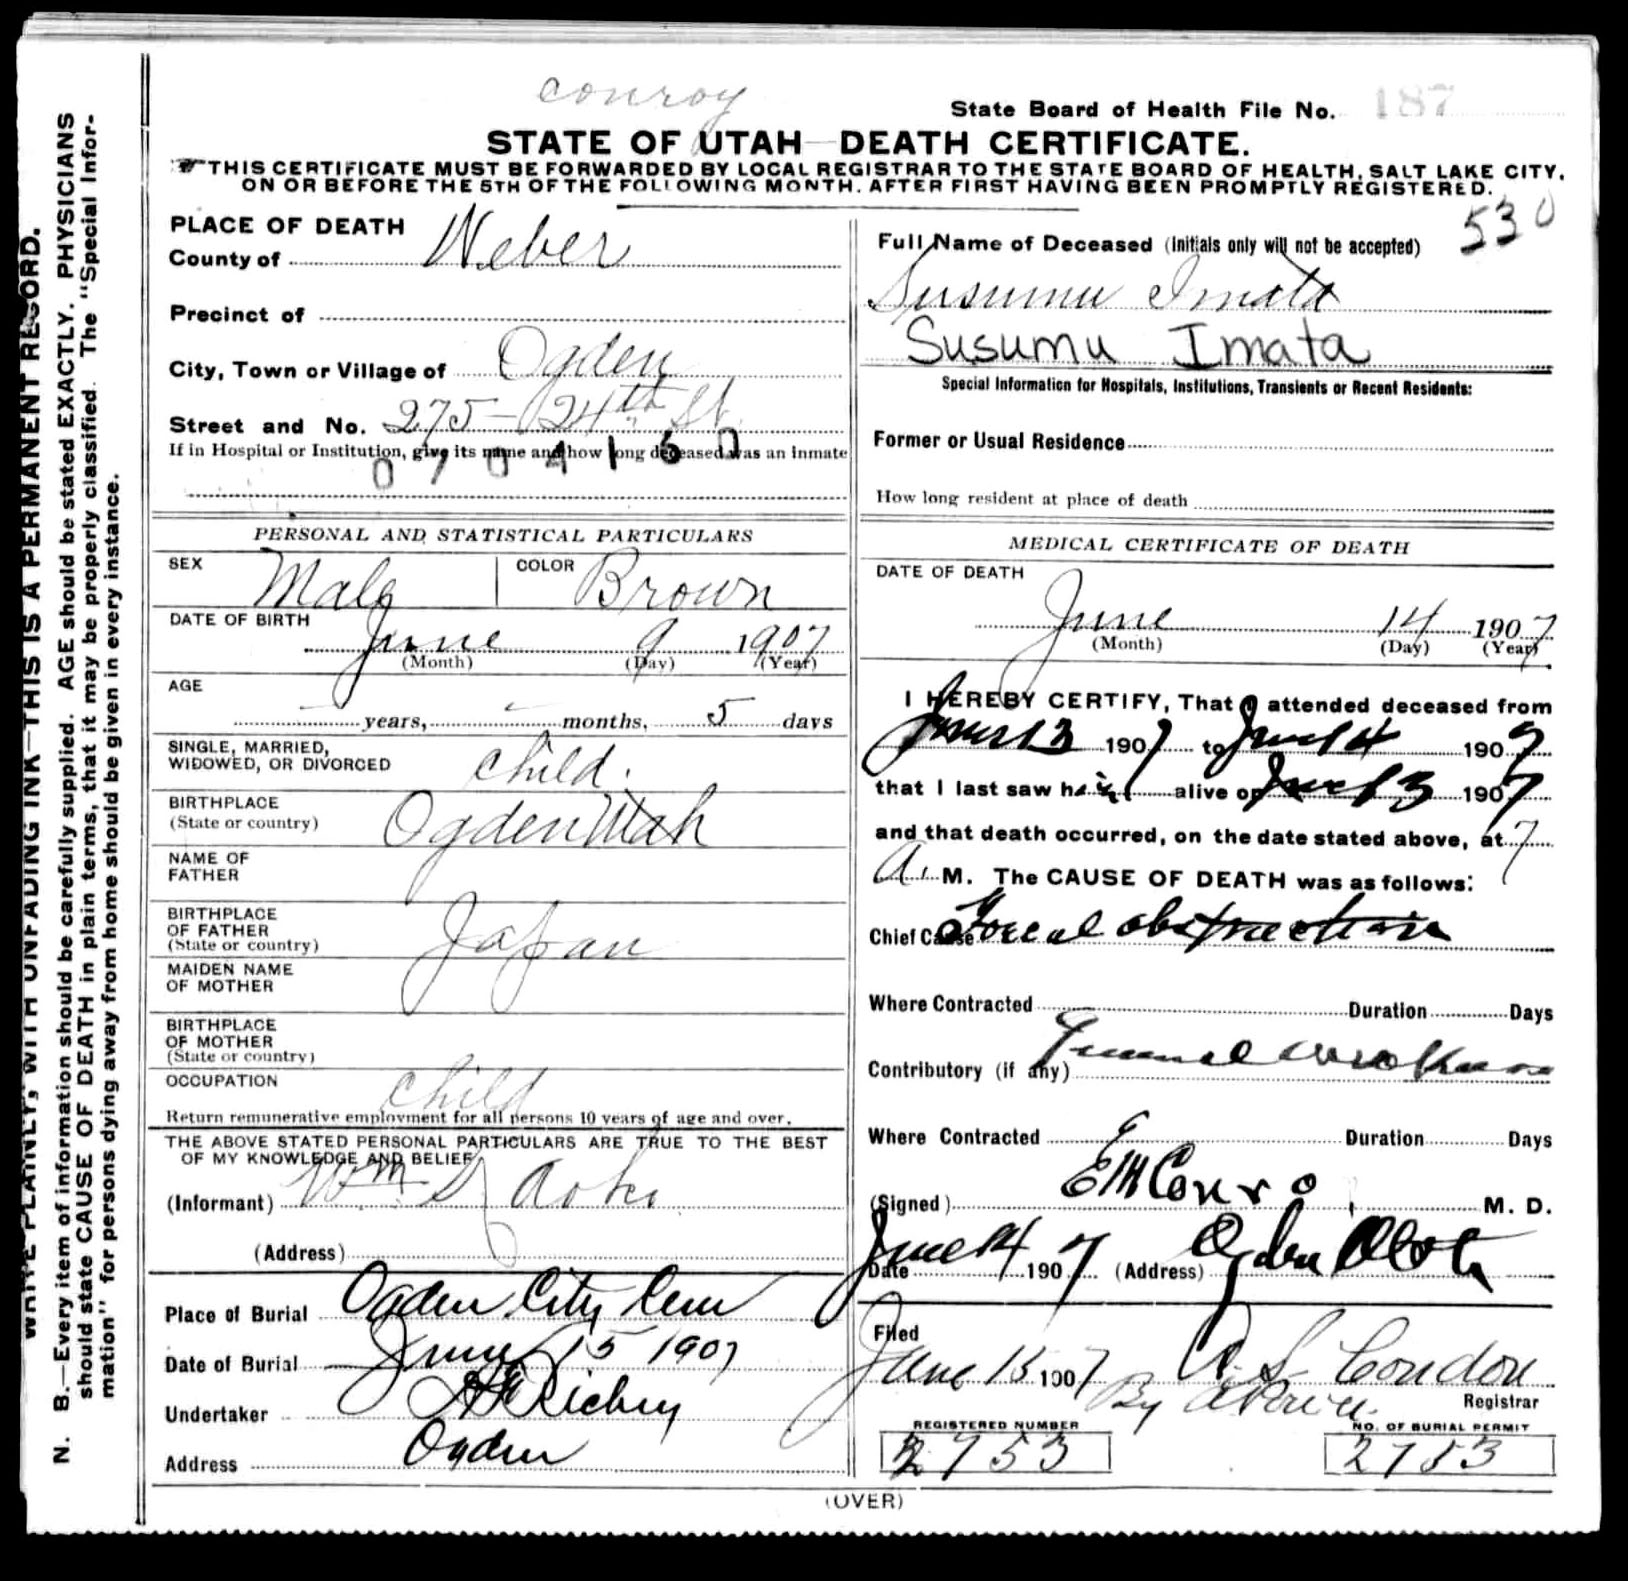 conroy
State Board of Health File No. 187
STATE OF UTAH—DEATH CERTIFICATE.
THIS CERTIFICATE MUST BE FORWARDED BY LOCAL REGISTRAR TO THE STATE BOARD OF HEALTH, SALT LAKE CITY,
ON OR BEFORE THE 5TH OF THE FOLLOWING MONTH. AFTER FIRST HAVING BEEN PROMPTLY REGISTERED.
530
WRITE PLAINLY, WITH UNFADING INK—THIS IS A PERMANENT RECORD.
N. B.—Every item of information should be carefully supplied. AGE should be stated EXACTLY. PHYSICIANS
should state CAUSE OF DEATH in plain terms, that it may be properly classified. The "Special Infor-
mation" for persons dying away from home should be given in every instance.
PLACE OF DEATH
County of Weber
Precinct of
City, Town or Village of Ogden
Street and No. 275 - 24th St
If in Hospital or Institution, give its name and how long deceased was an inmate
0704160
Full Name of Deceased (Initials only will not be accepted)
Susumu Imata
Susumu Imata
Special Information for Hospitals, Institutions, Transients or Recent Residents:
Former or Usual Residence
How long resident at place of death
PERSONAL AND STATISTICAL PARTICULARS
SEX Male COLOR Brown
DATE OF BIRTH
June 9 1907
(Month) (Day) (Year)
AGE
years, months, 5 days
SINGLE, MARRIED,
WIDOWED, OR DIVORCED child.
BIRTHPLACE
(State or country) Ogden Utah
NAME OF
FATHER
BIRTHPLACE
OF FATHER
(State or country) Japan
MAIDEN NAME
OF MOTHER
BIRTHPLACE
OF MOTHER
(State or country)
OCCUPATION child
Return remunerative employment for all persons 10 years of age and over.
THE ABOVE STATED PERSONAL PARTICULARS ARE TRUE TO THE BEST
OF MY KNOWLEDGE AND BELIEF
(Informant) Wm
(Address)
Place of Burial Ogden City Cem
Date of Burial June 15 1907
Undertaker Richey
Address Ogden
MEDICAL CERTIFICATE OF DEATH
DATE OF DEATH
June 14 1907
(Month) (Day) (Year)
I HEREBY CERTIFY, That I attended deceased from
June 13 1907 to June 14 1907
that I last saw him alive on June 13 1907
and that death occurred, on the date stated above, at 7
A. M. The CAUSE OF DEATH was as follows:
Chief Cause obstruction
Where Contracted Duration Days
Contributory (if any) General weakness
Where Contracted Duration Days
(Signed) E M Conroy M. D.
Date June 14 1907 (Address) Ogden Utah
Filed
June 15 1907 Condon
By
Registrar
REGISTERED NUMBER NO. OF BURIAL PERMIT
2753 2753
(OVER)